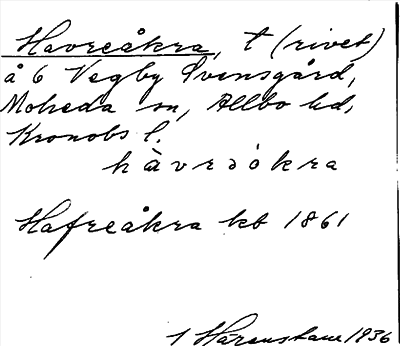 Havreåkra, t (rivet)
å 6 Vegby Svensgård,
Moheda sn, Allbo hd,
Kronobs l.
hàvrəòkra
Hafreåkra kb 1861
1936